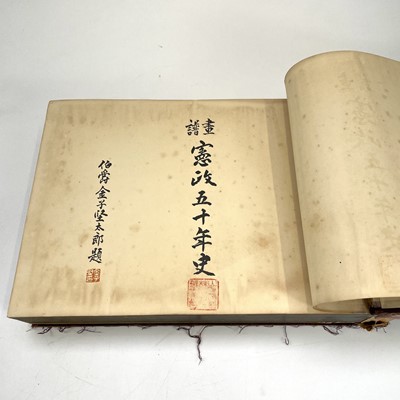 畫譜
憲政五十年史
伯爵金子堅太郎題